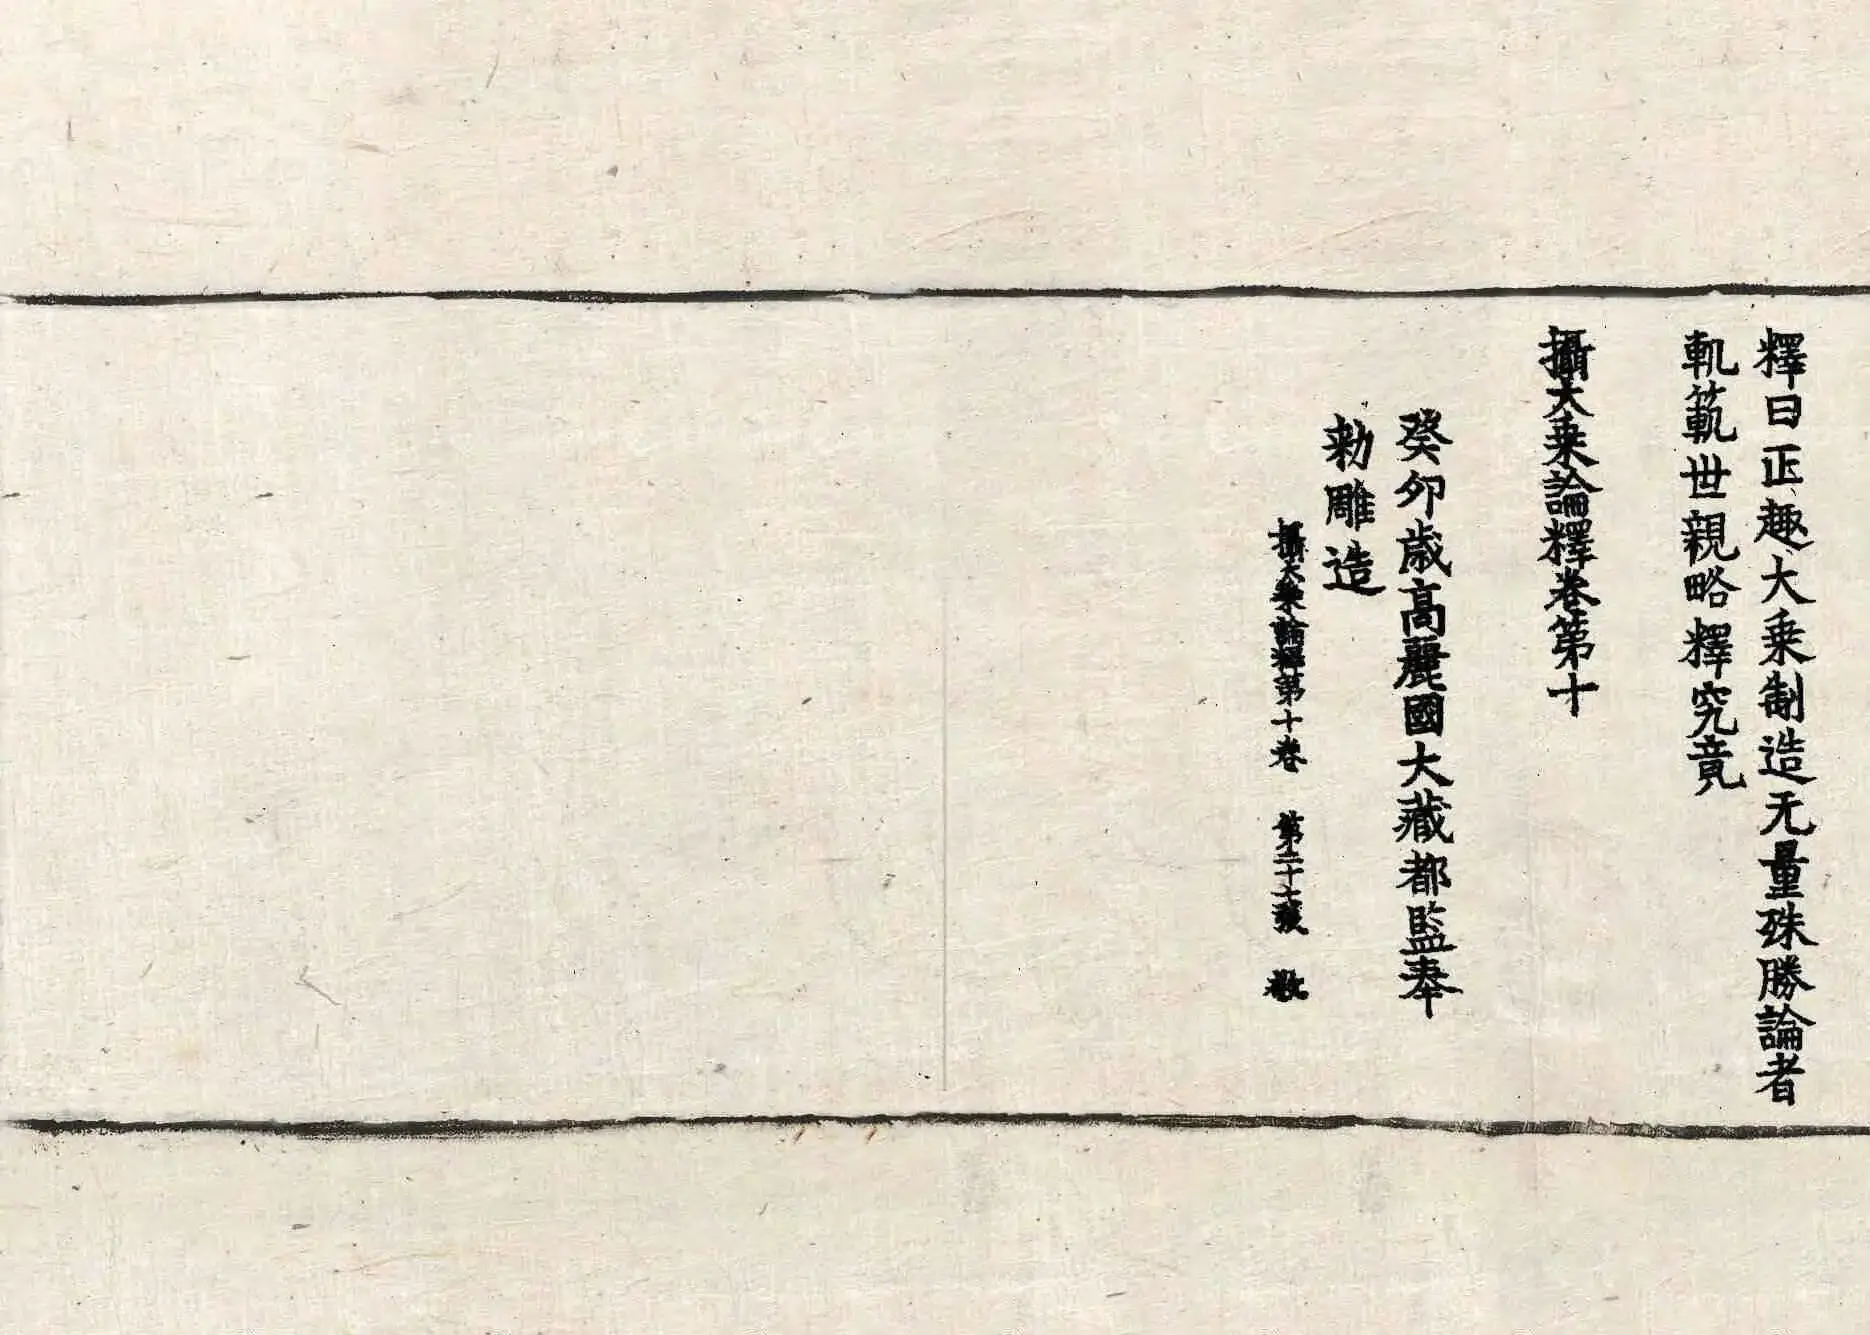 釋曰正趣大乗制造无量殊勝論者
軌範世親略釋究竟
攝大乗論釋卷第十
癸卯歳高麗國大藏都監奉
勅雕造
攝大乗論釋第十卷 第二十七張 敬